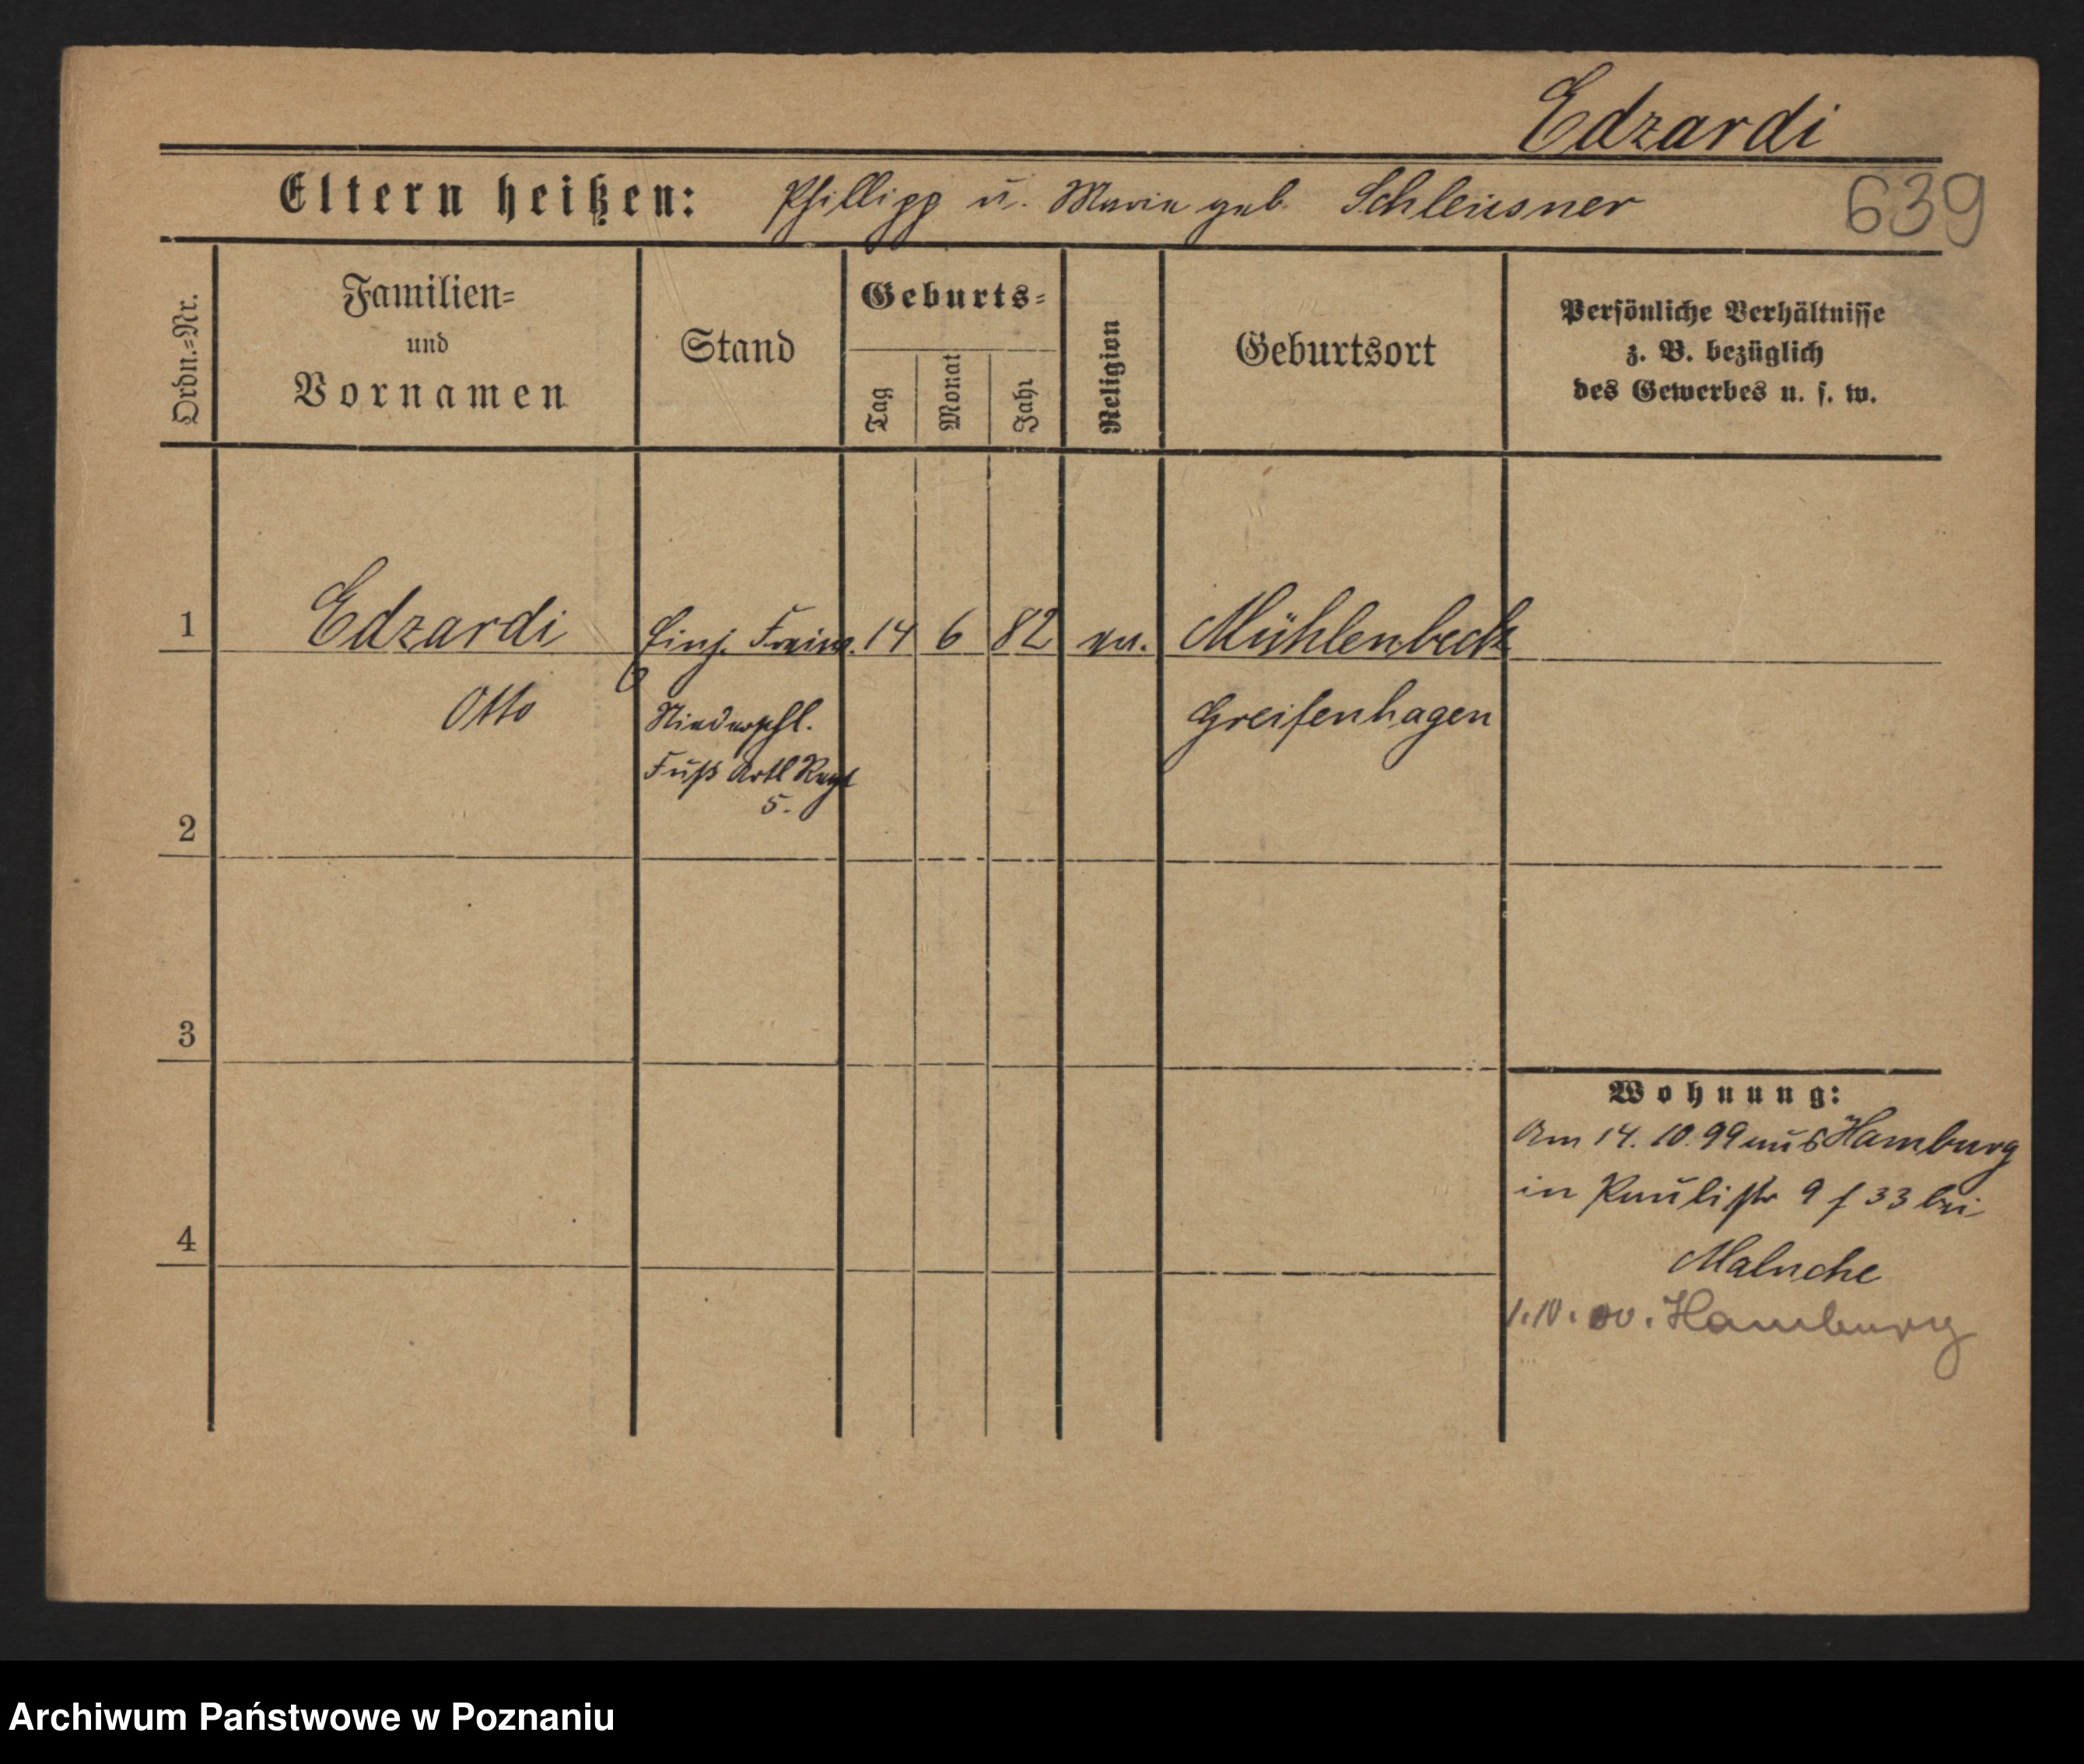 Edzardi
Eltern heißen: Phillipp u. Marie geb. Schleusner
639
Ordn.=Nr.
Familien=
und
Vornamen
Stand
Geburts=
Tag
Monat
Jahr
Religion
Geburtsort
Persönliche Verhältnisse
z. B. bezüglich
des Gewerbes u. s. w.
1 Edzardi Einj. Freiw. 14 6 82 ev. Mühlenbeck
Otto Niederschl. Greifenhagen
Fuß Artl Regt
5.
2
3
4
Wohnung:
Am 14. 10. 99 aus Hamburg
in Paulistr 9 f 33 bei
Malnche
1.10.00. Hamburg
Archiwum Państwowe w Poznaniu